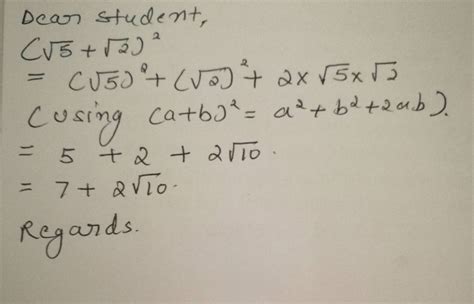 Dear student,
(√5 + √2)²
= (√5)² + (√2)² + 2 × √5 × √2
(using (a+b)² = a² + b² + 2ab).
= 5 + 2 + 2√10.
= 7 + 2√10.
Regards.